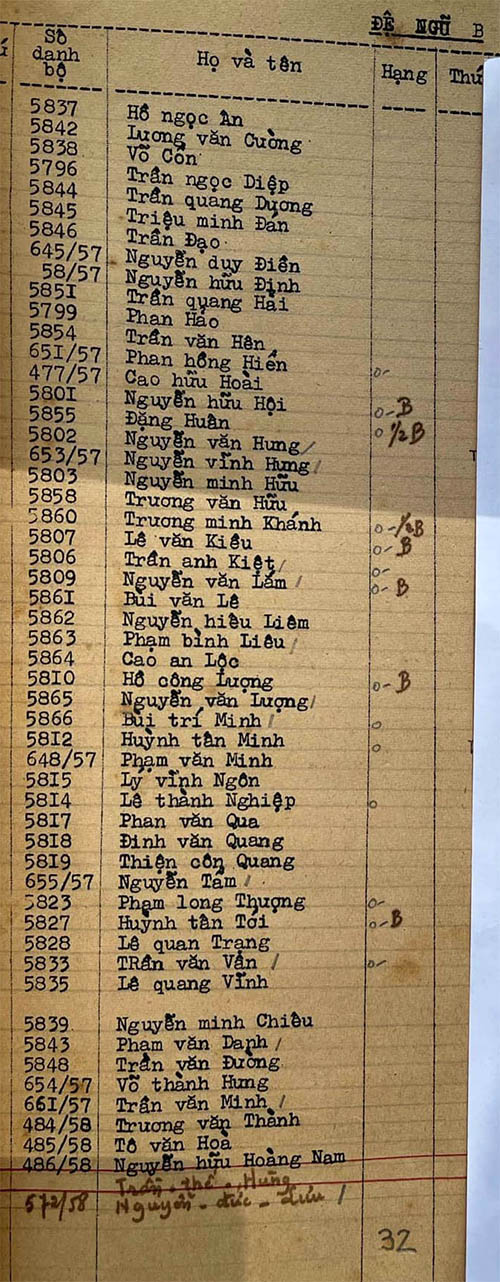 ĐỆ NGŨ B
Số danh bộ Họ và tên Hạng Thứ
5837 Hồ ngọc Ân
5842 Lương văn Cường
5838 Võ Cổn
5796 Trần ngọc Diệp
5844 Trần quang Dương
5845 Triệu minh Đán
5846 Trần Đạo
645/57 Nguyễn duy Điền
58/57 Nguyễn hữu Định
585I Trần quang Hải
5799 Phan Hảo
5854 Trần văn Hên
65I/57 Phan hồng Hiến
477/57 Cao hữu Hoài o-
580I Nguyễn hữu Hội
5855 Đặng Huân o-B
5802 Nguyễn văn Hưng / o 1/2 B
653/57 Nguyễn vĩnh Hưng /
5803 Nguyễn minh Hữu
5858 Trương văn Hữu
5860 Trương minh Khánh o-1/2B
5807 Lê văn Kiều o-B
5806 Trần anh Kiệt / o-
5809 Nguyễn văn Lắm / o-B
586I Bùi văn Lê
5862 Nguyễn hiếu Liêm
5863 Phạm bình Liêu /
5864 Cao an Lộc
58I0 Hồ công Lượng o-B
5865 Nguyễn văn Lượng /
5866 Bùi trí Minh / o
58I2 Huỳnh tấn Minh o
648/57 Phạm văn Minh
58I5 Lý vĩnh Ngôn
58I4 Lê thành Nghiệp o
58I7 Phan văn Qua
58I8 Đinh văn Quang
58I9 Thiện côn Quang
655/57 Nguyễn Tấm /
5823 Phạm long Thượng o-
5827 Huỳnh tấn Tới o-B
5828 Lê quan Trạng
5833 TRần văn Vấn / o-
5835 Lê quang Vĩnh
5839 Nguyễn minh Chiêu
5843 Phạm văn Danh /
5848 Trần văn Đường
654/57 Võ thành Hưng
66I/57 Trần văn Minh /
484/58 Trương văn Thành
485/58 Tô văn Hoà
486/58 Nguyễn hữu Hoàng Nam
Trần - thế - Hùng
672/58 Nguyễn - đức - Lưu /
32